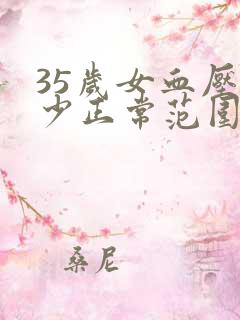 35歲女血壓
少正常范围
桑尼